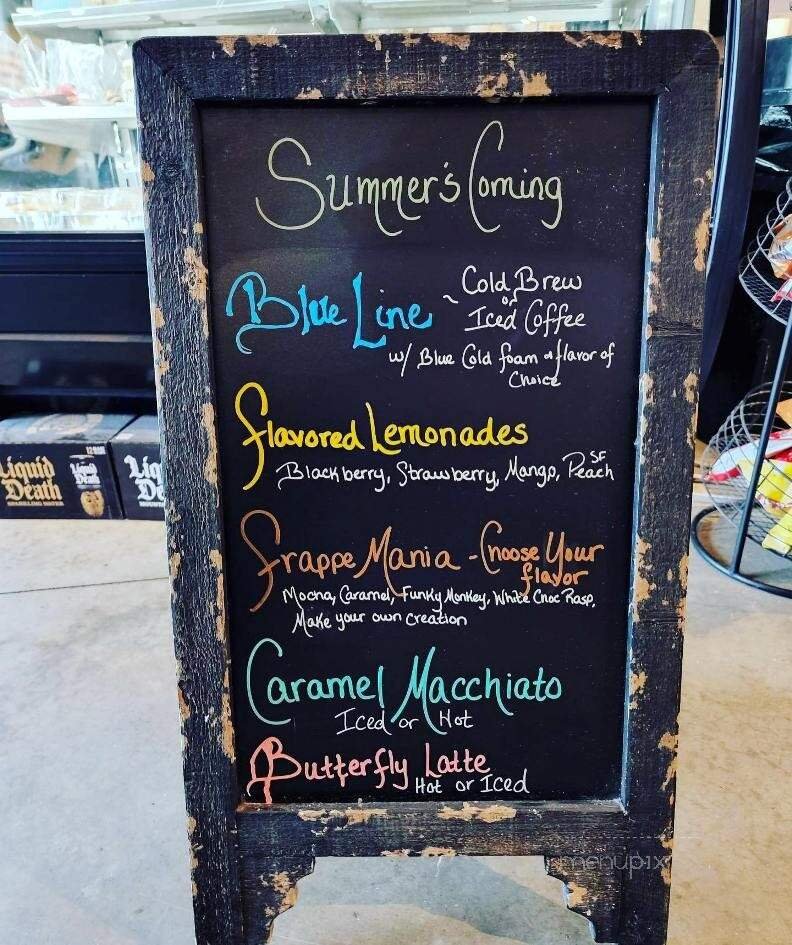 Summer's Coming
Blue Line ~ Cold Brew
or
Iced Coffee
w/ Blue Cold foam & flavor of
Choice
Flavored Lemonades
Blackberry, Strawberry, Mango, SF Peach
Frappe Mania - Choose Your
flavor
Mocha, Caramel, Funky Monkey, White Choc Rasp,
Make your own creation
Caramel Macchiato
Iced or Hot
Butterfly Latte
Hot or Iced
Liquid
Death
SPARKLING WATER
Liquid
Death
Liq
De
menupix